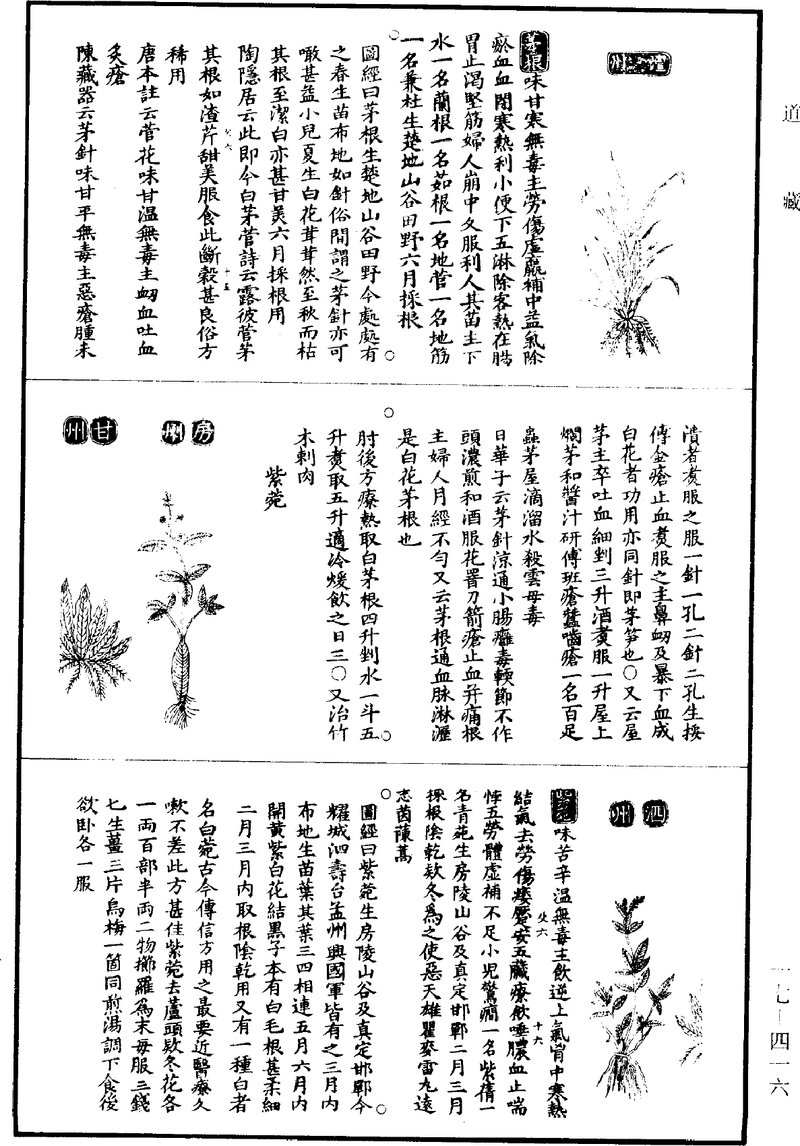 道藏
澶州
茅根味甘寒無毒主勞傷虛羸補中益氣除
瘀血血閉寒熱利小便下五淋除客熱在腸
胃止渴堅筋婦人崩中久服利人其苗主下
水一名蘭根一名茹根一名地菅一名地筋
一名兼杜生楚地山谷田野六月採根
圖經曰茅根生楚地山谷田野今處處有
之春生苗布地如針俗間謂之茅針亦可
噉甚益小兒夏生白花茸茸然至秋而枯
其根至潔白亦甚甘美六月採根用
陶隱居云此即今白茅菅詩云露彼菅茅
其根如渣芹甜美服食此斷穀甚良俗方
稀用
唐本註云菅花味甘溫無毒主衂血吐血
灸瘡
陳藏器云茅針味甘平無毒主惡瘡腫未
潰者煑服之服一針一孔二針二孔生挼
傅金瘡止血煑服之主鼻衂及暴下血成
白花者功用亦同針即茅笋也○又云屋
茅主卒吐血細剉三升酒煑服一升屋上
爛茅和醬汁研傅班瘡蠶嚙瘡一名百足
蟲茅屋滴溜水殺雲母毒
日華子云茅針涼通小腸癰毒軟節不作
頭濃煎和酒服花罯刀箭瘡止血并痛根
主婦人月經不勻又云茅根通血脉淋瀝
是白花茅根也
肘後方療熱取白茅根四升剉水一斗五
升煑取五升適冷煖飲之日三○又治竹
木刺肉
紫菀
房州
甘州
泗州
紫菀味苦辛溫無毒主欬逆上氣胷中寒熱
結氣去勞傷痿蹷安五臟療欬唾膿血止喘
悸五勞體虛補不足小兒驚癇一名紫蒨一
名青菀生房陵山谷及真定邯鄲二月三月
採根陰乾欵冬爲之使惡天雄瞿麥雷丸遠
志茵蔯蒿
圖經曰紫菀生房陵山谷及真定邯鄲今
耀城泗壽台孟州興國軍皆有之三月內
布地生苗葉其葉三四相連五月六月內
開黃紫白花結黑子本有白毛根甚柔細
二月三月內取根陰乾用又有一種白者
名白菀古今傳信方用之最要近醫療久
嗽不差此方甚佳紫菀去蘆頭欵冬花各
一兩百部半兩二物擣羅爲末每服三錢
匕生薑三片烏梅一箇同煎湯調下食後
欲卧各一服
一七—四一六